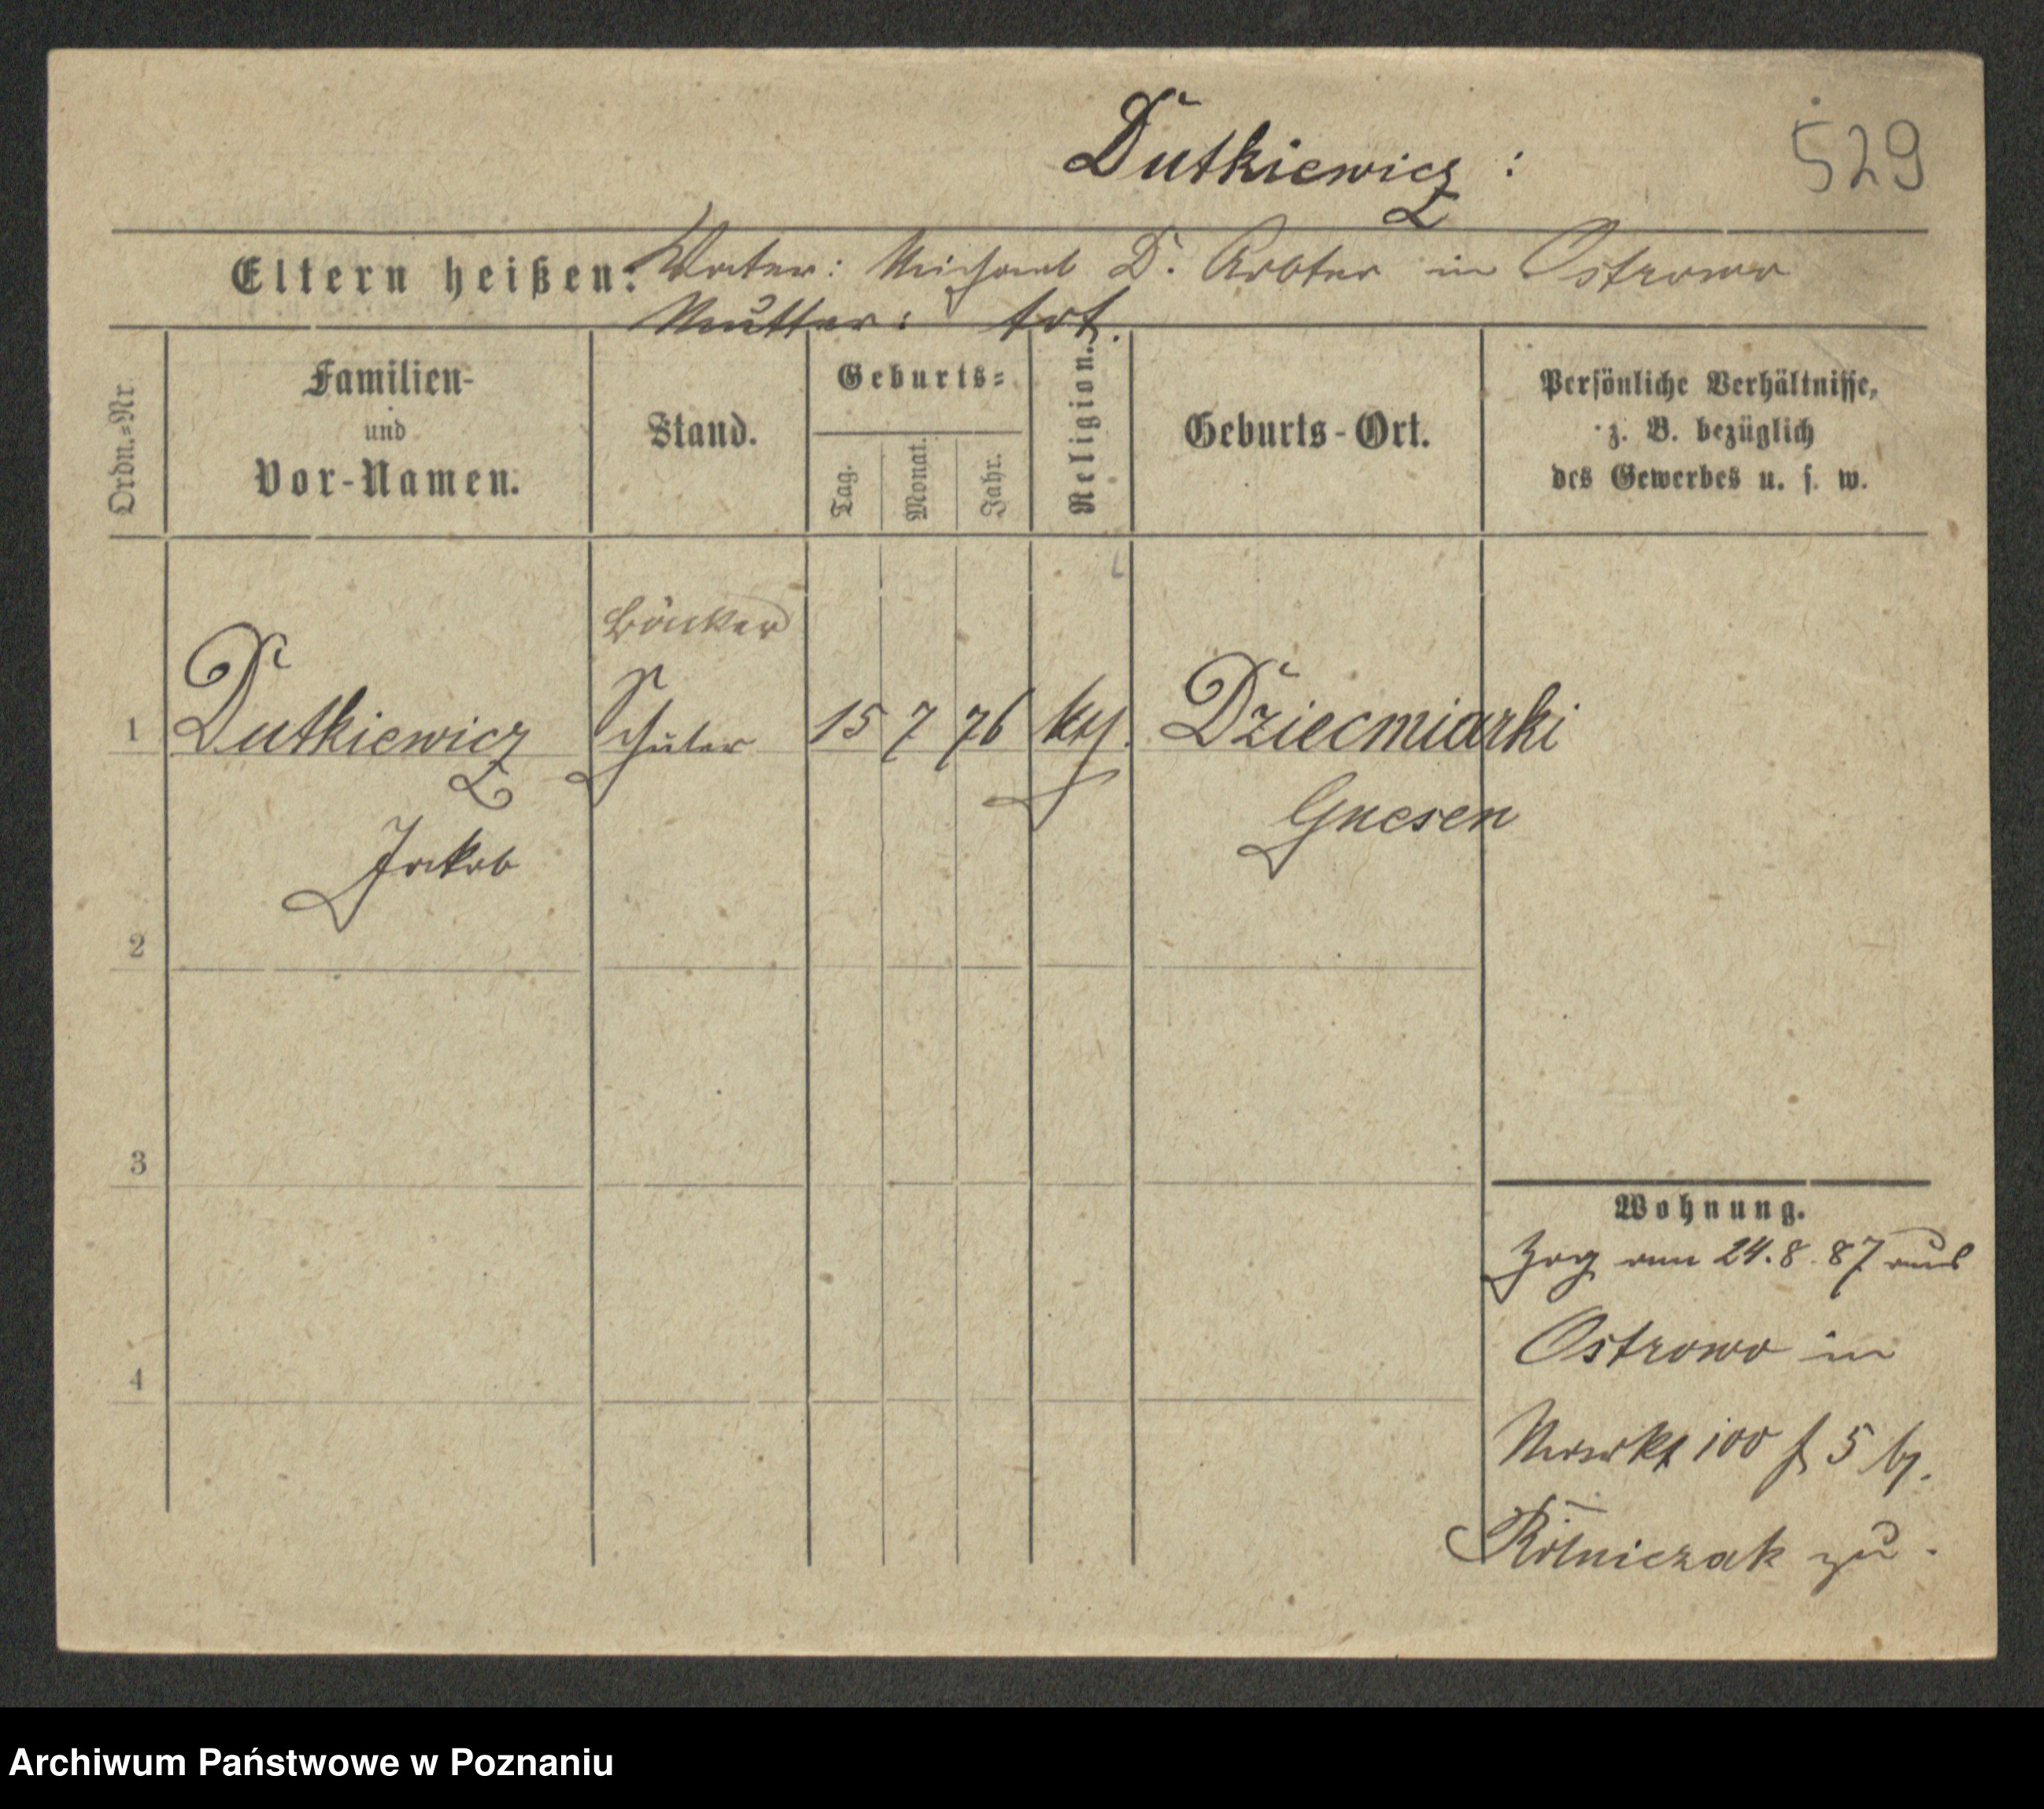 Dutkiewicz :
529
Eltern heißen: Vater: Michael D. Arbter in Ostrowo
Mutter: tot.
Ordn.=Nr.
Familien-
und
Vor-Namen.
Stand.
Geburts=
Tag.
Monat.
Jahr.
Religion.
Geburts-Ort.
Persönliche Verhältnisse,
z. B. bezüglich
des Gewerbes u. s. w.
Bäcker
1 Dutkiewicz Schüler 15 7 76 kth. Dziecmiarki
Jakob Gnesen
2
3
4
Wohnung.
Zog am 24.8.87 aus
Ostrowo in
100 5 b/.
Rólniczak zu.
Archiwum Państwowe w Poznaniu